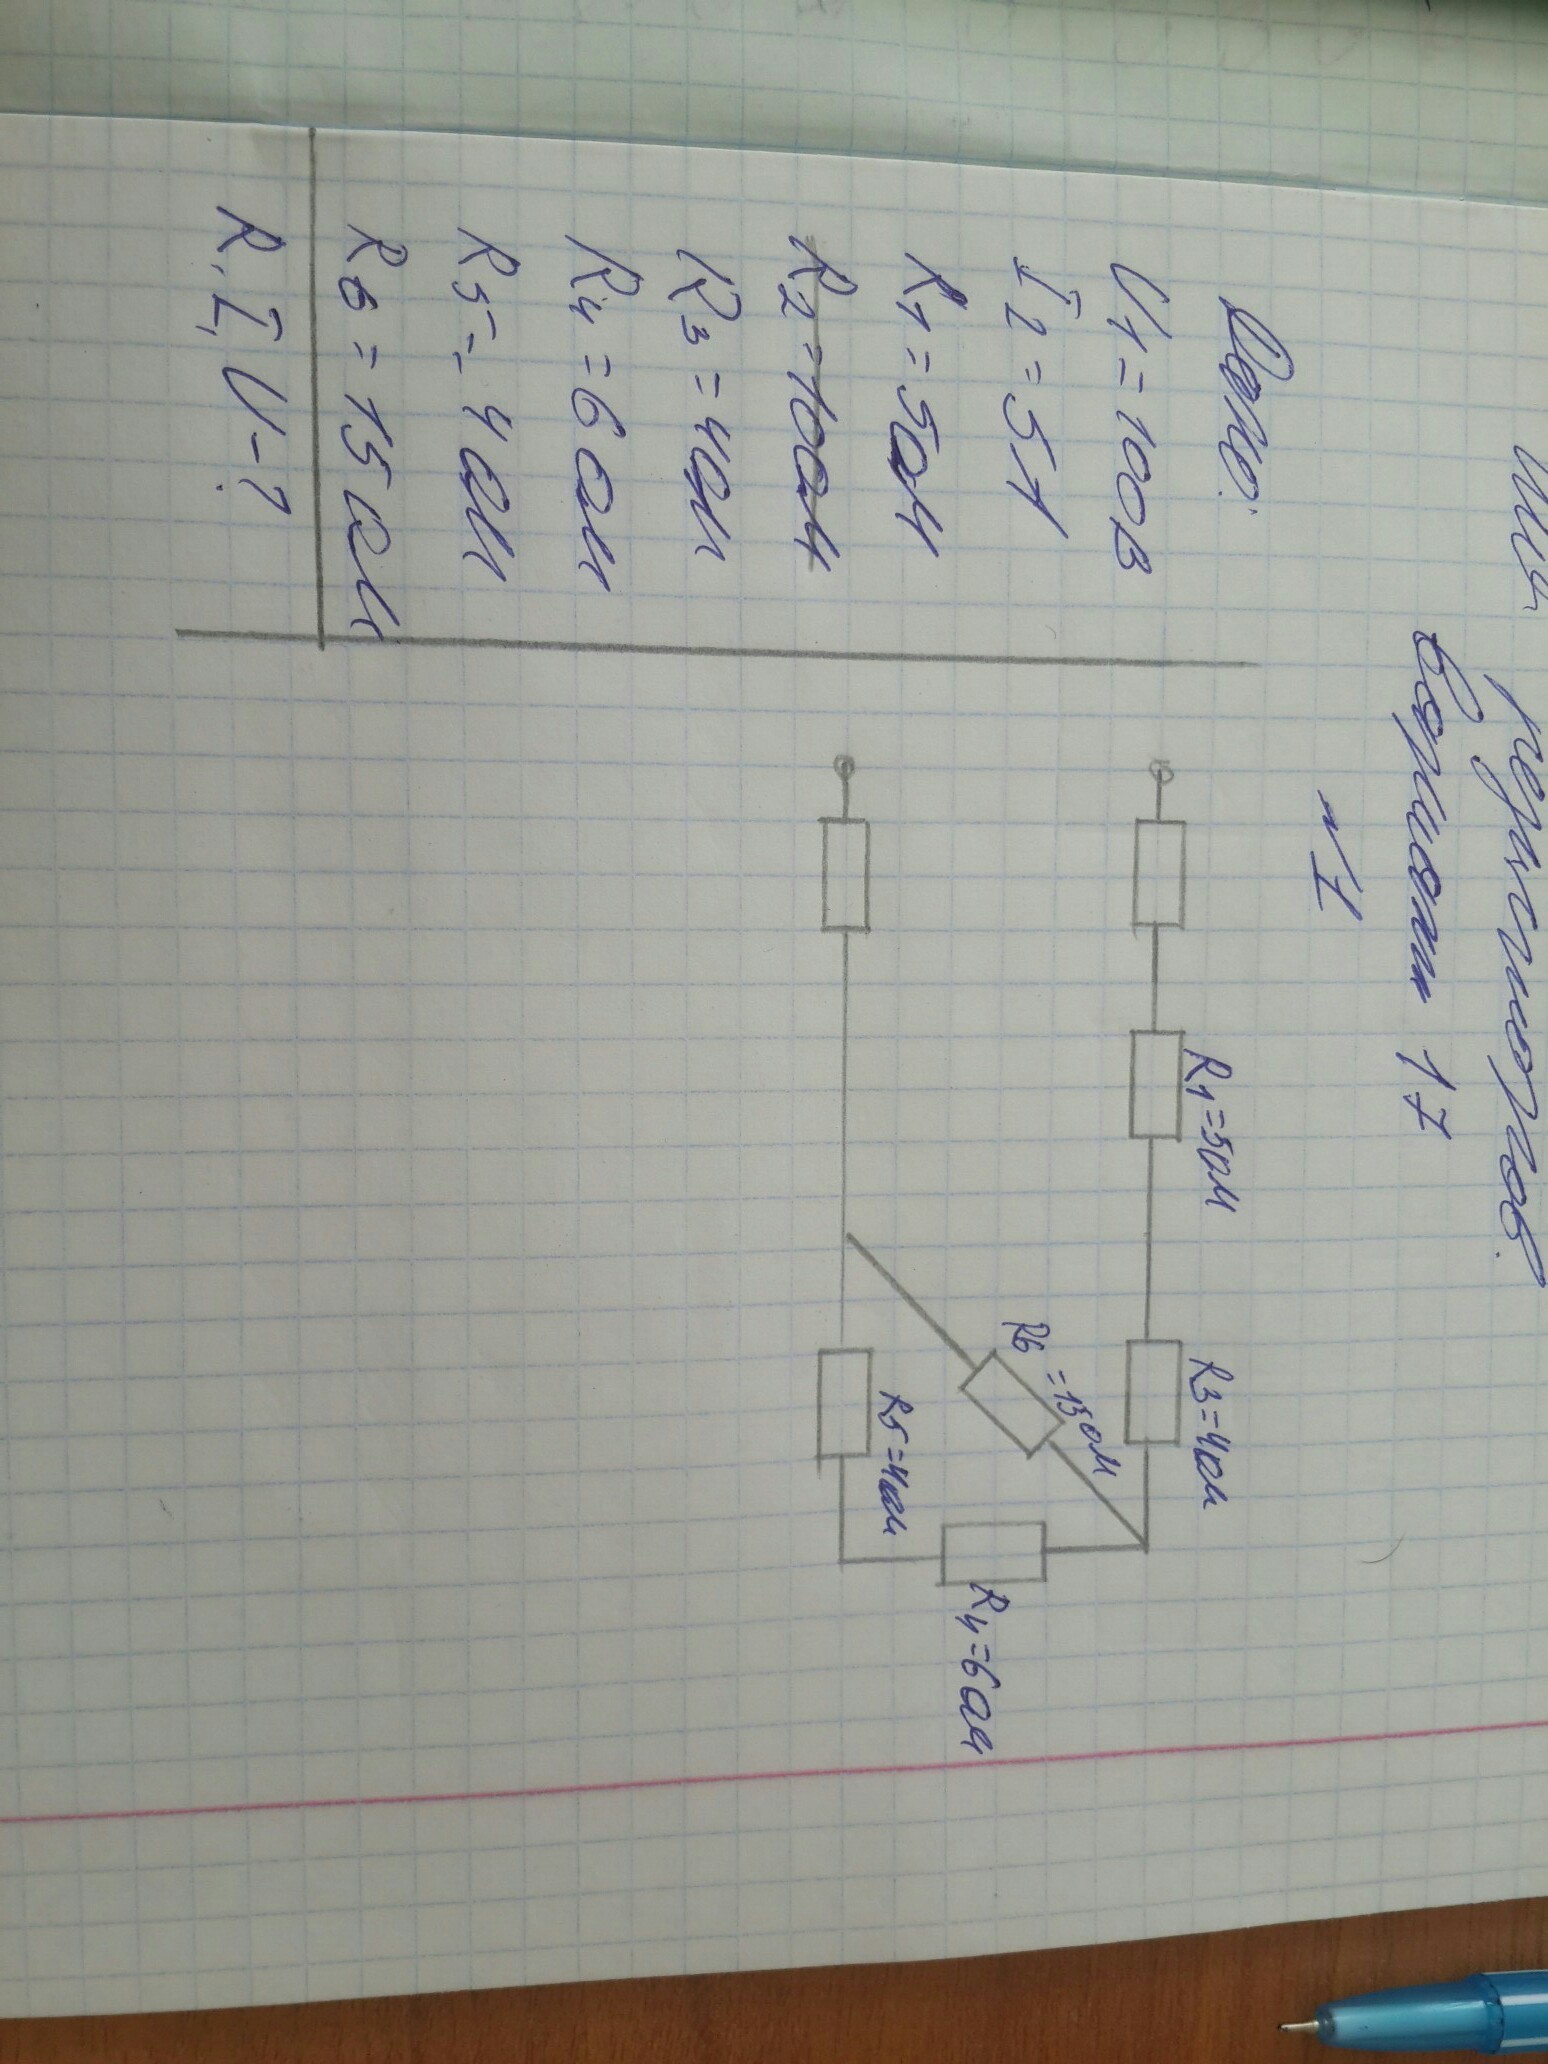 резисторов.
Вариант 17
№1
Дано:
U1 = 100В
I2 = 5А
R1 = 5ом
R2 = 10ом
R3 = 4ом
R4 = 6 ом
R5 = 4 ом
R6 = 15 ом
R, I, U - ?
R1=5ом
R3=4ом
R6 =15ом
R4=6ом
R5=4ом